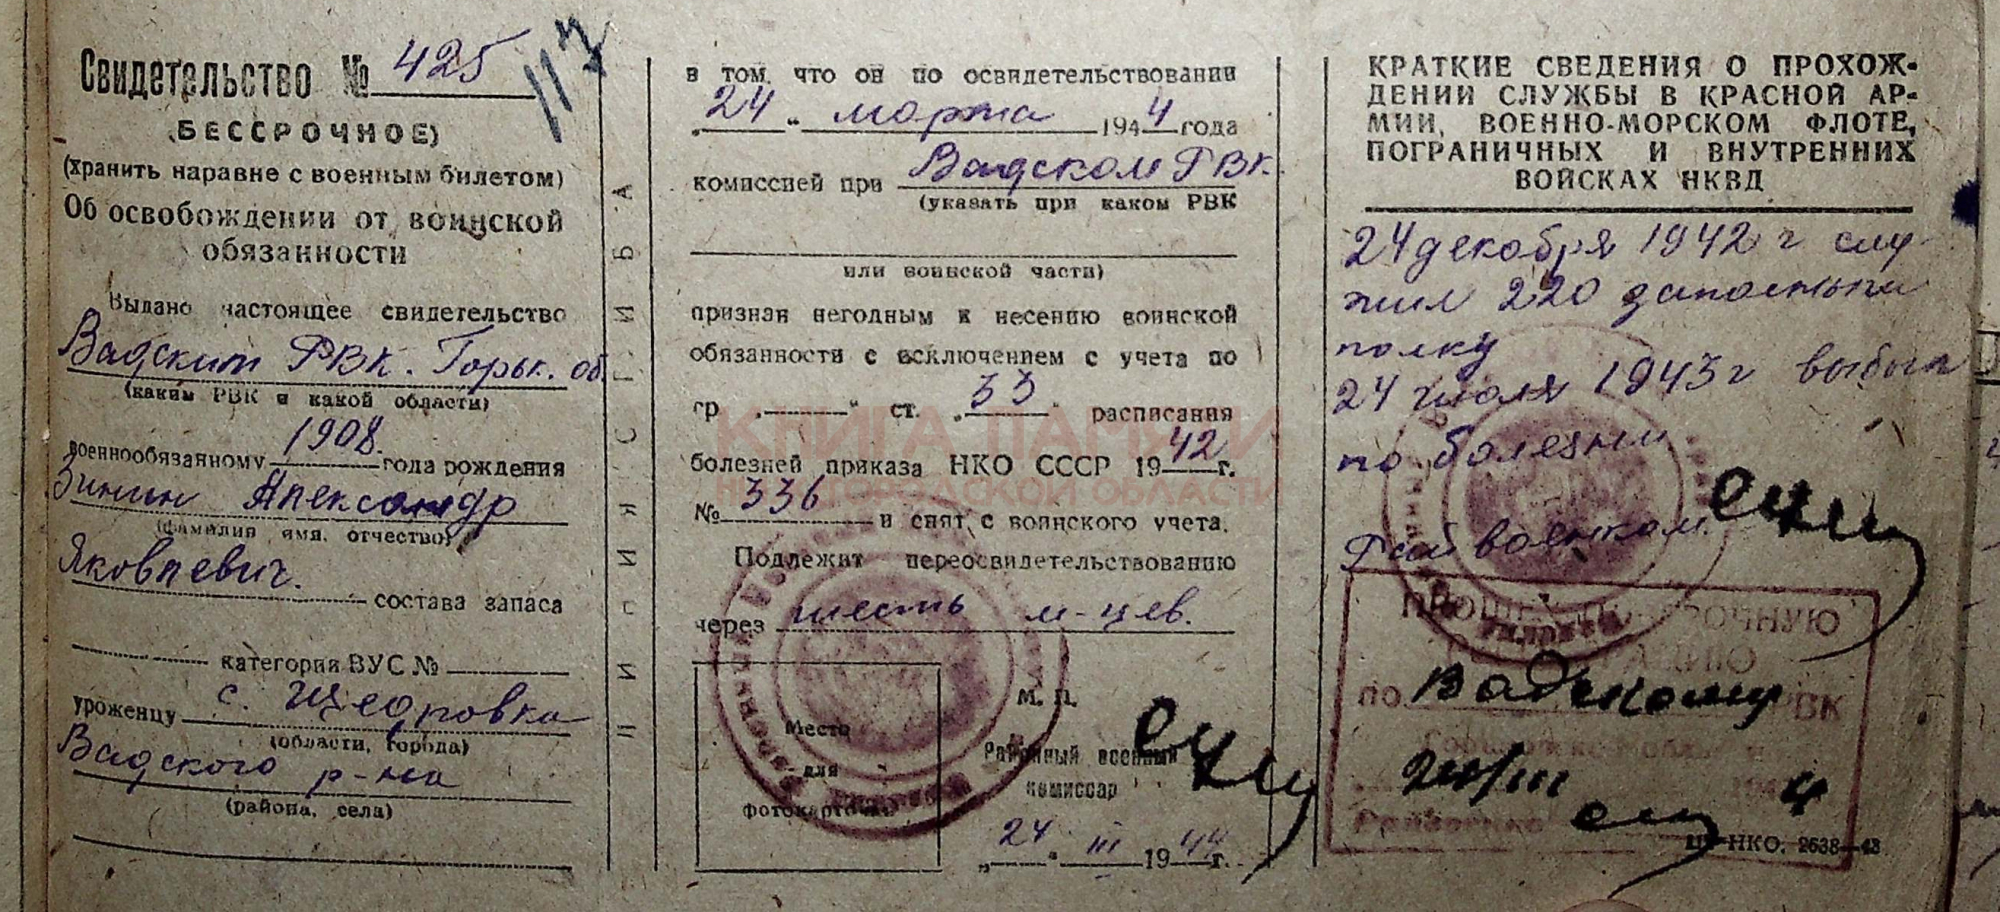 Свидетельство № 425
117
(БЕССРОЧНОЕ)
(хранить наравне с военным билетом)
Об освобождении от воинской
обязанности
Выдано настоящее свидетельство
Вадским РВК. Горьк. об.
(каким РВК и какой области)
военнообязанному 1908. года рождения
Зинин Александр
(фамилия имя, отчество)
Яковлевич.
состава запаса
категории ВУС №
уроженцу с. Щедровка
(области, города)
Вадского р-на
(района, села)
ЛИНИЯ СГИБА
в том, что он по освидетельствовании
„24“ марта 1944 года
комиссией при Вадском РВК.
(указать при каком РВК
или воинской части)
признан негодным к несению воинской
обязанности с исключением с учета по
гр „ “ ст. „33“ расписания
болезней приказа НКО СССР 1942 г.
№ 336 и снят с воинского учета.
Подлежит переосвидетельствованию
через шесть м-цев.
Место
для
фотокарточки
М. П.
Районный военный
комиссар
„24“ III 1944 г.
КНИГА ПАМЯТИ
НИЖЕГОРОДСКОЙ ОБЛАСТИ
КРАТКИЕ СВЕДЕНИЯ О ПРОХОЖ-
ДЕНИИ СЛУЖБЫ В КРАСНОЙ АР-
МИИ, ВОЕННО-МОРСКОМ ФЛОТЕ,
ПОГРАНИЧНЫХ И ВНУТРЕННИХ
ВОЙСКАХ НКВД
24 декабря 1942 г слу-
жил 220 запасным
полку
24 июля 1943 г выбыл
по болезни
Рай военком.
ПО Вадскому РВК
24/III 4
НКО. 2638—43